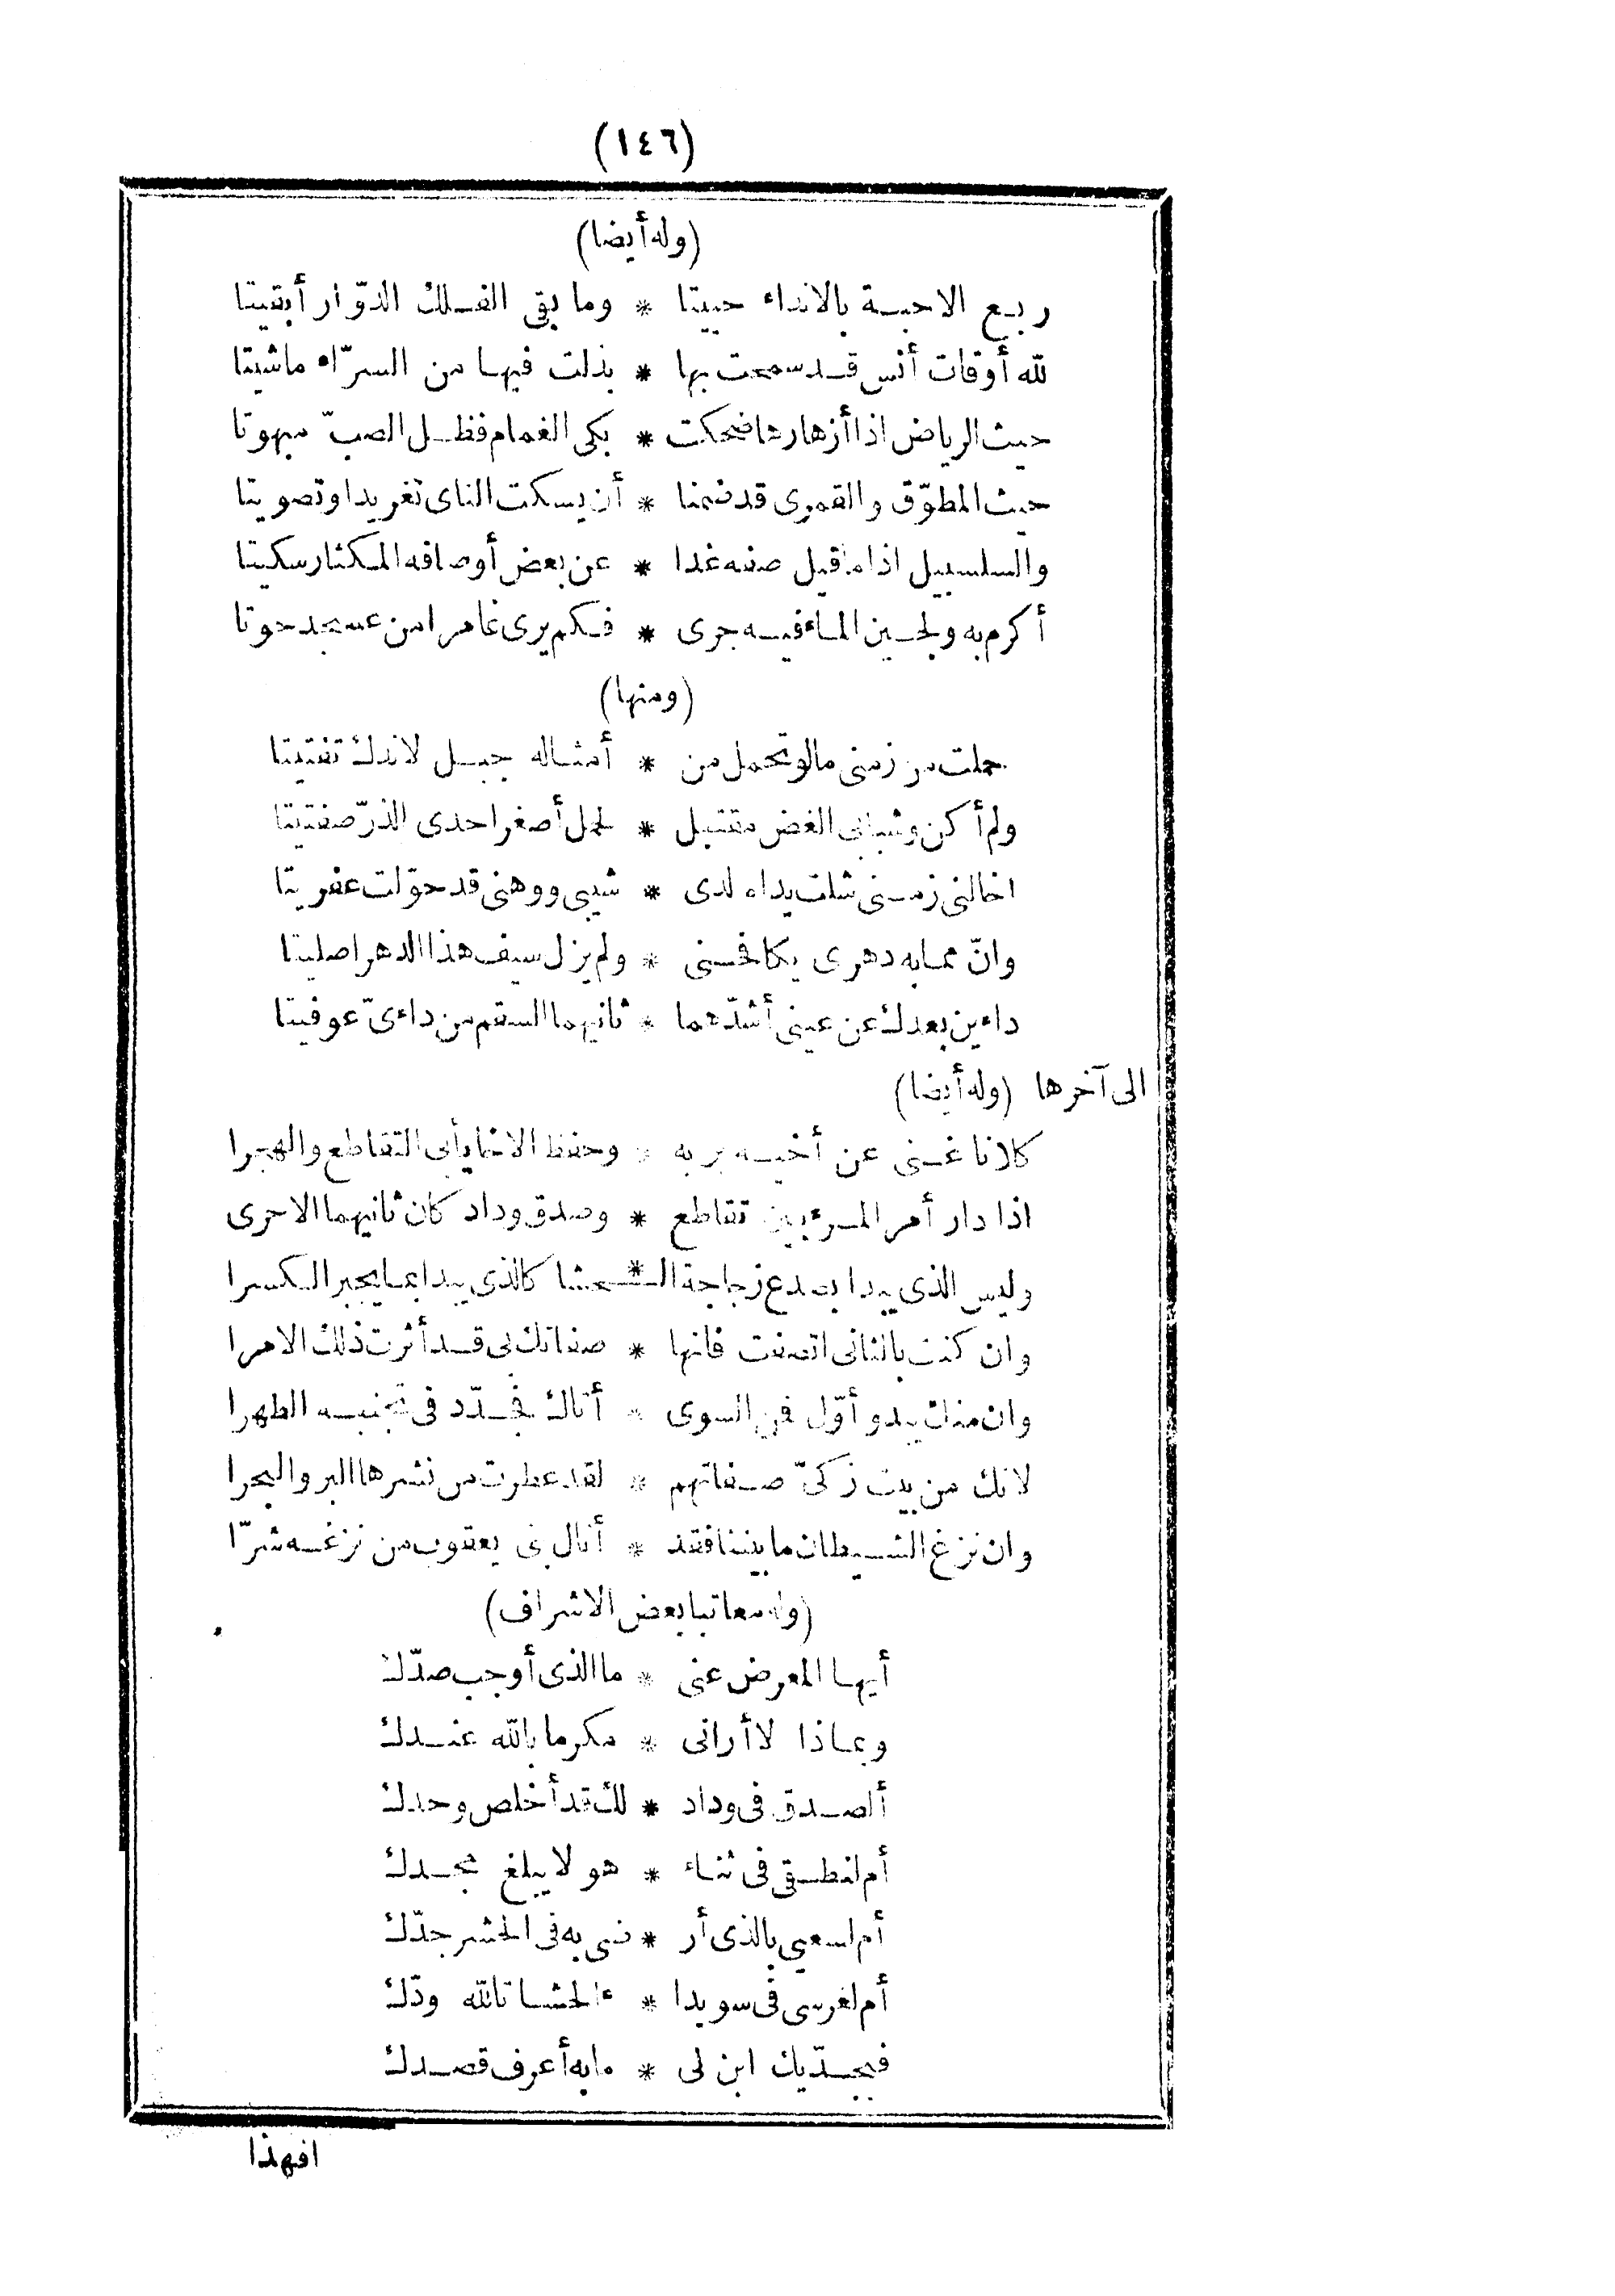 (١٤٦)
(وله أيضا)
ربع الاحبة بالانداء حييتا * وما بقى الفلك الدوّار أبقيتا
لله أوقات أنس قد سمحت بها * بذلت فيها من السرّاء ماشيتا
حيث الرياض اذا أزهارها ضحكت * بكى الغمام فظل الصبّ مبهوتا
حيث المطوّق والقمرى قد ضمنا * أن يسكت الناى تغريدا وتصويتا
والسلسبيل اذا ما قيل صفه غدا * عن بعض أوصافه المكثار سكيتا
أكرم به ولجين الماء فيه جرى * فكم يرى غامرا من عسجد حوتا
(ومنها)
حملت من زمنى مالو تحمل من * أمثاله جبل لاندك تفتيتا
ولم أكن وشبابى الغض مقتبل * لحمل أصغر احدى الذرّ صفتيتا
اخالنى زمنى شلت يداه لدى * شيبى ووهنى قد حوّلت عفريتا
وانّ مما به دهرى يكافحنى * ولم يزل سيف هذا الدهر اصليتا
داءين بعدك عن عينى أشدّهما * ثانيهما السقم من داءىّ عوفيتا
الى آخرها (وله أيضا)
كلانا غنى عن أخيه بربه * وحفظ الاخا يأبى التقاطع والهجرا
اذا دار أمر المرء بين تقاطع * وصدق وداد كان ثانيهما الاحرى
وليس الذى يبدا بصدع زجاجة الـ * ـحشا كالذى يبدا بما يجبر الكسرا
وان كنت بالثانى اتصفت فانها * صفاتك بى قد أثرت ذلك الامرا
وان منك يبدو أوّل فن السوى * أتاك فجدّد فى تجنبه الطهرا
لانك من بيت زكىّ صفاتهم * لقد عطرت من نشرها البر والبحرا
وان نزغ الشيطان ما بيننا فقد * أنال بنى يعقوب من نزغه شرّا
(وله معاتبا بعض الاشراف)
أيها المعرض عنى * ما الذى أوجب صدّك
وبماذا لا أرانى * مكرما بالله عندك
ألصدق فى وداد * لك قد أخلص وحدك
أم لنطقى فى ثناء * هو لا يبلغ مجدك
أم لسعيى بالذى أر * ضى به فى الحشر جدّك
أم لغرسى فى سويدا * ء الحشا تالله ودّك
فبجدّيك ابن لى * ما به أعرف قصدك
افهذا